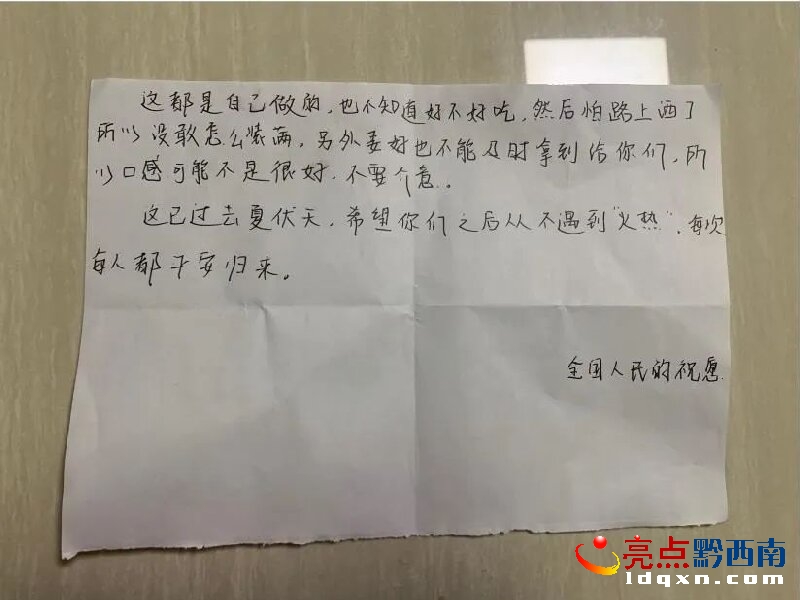 这都是自己做的,也不知道好不好吃,然后怕路上洒了
所以没敢怎么装满,另外弄好也不能及时拿到给你们,所
以口感可能不是很好,不要介意。
这已过去夏伏天,希望你们之后从不遇到"火热",每次
每人都平安归来。
全国人民的祝愿
亮点黔西南
ldqxn.com